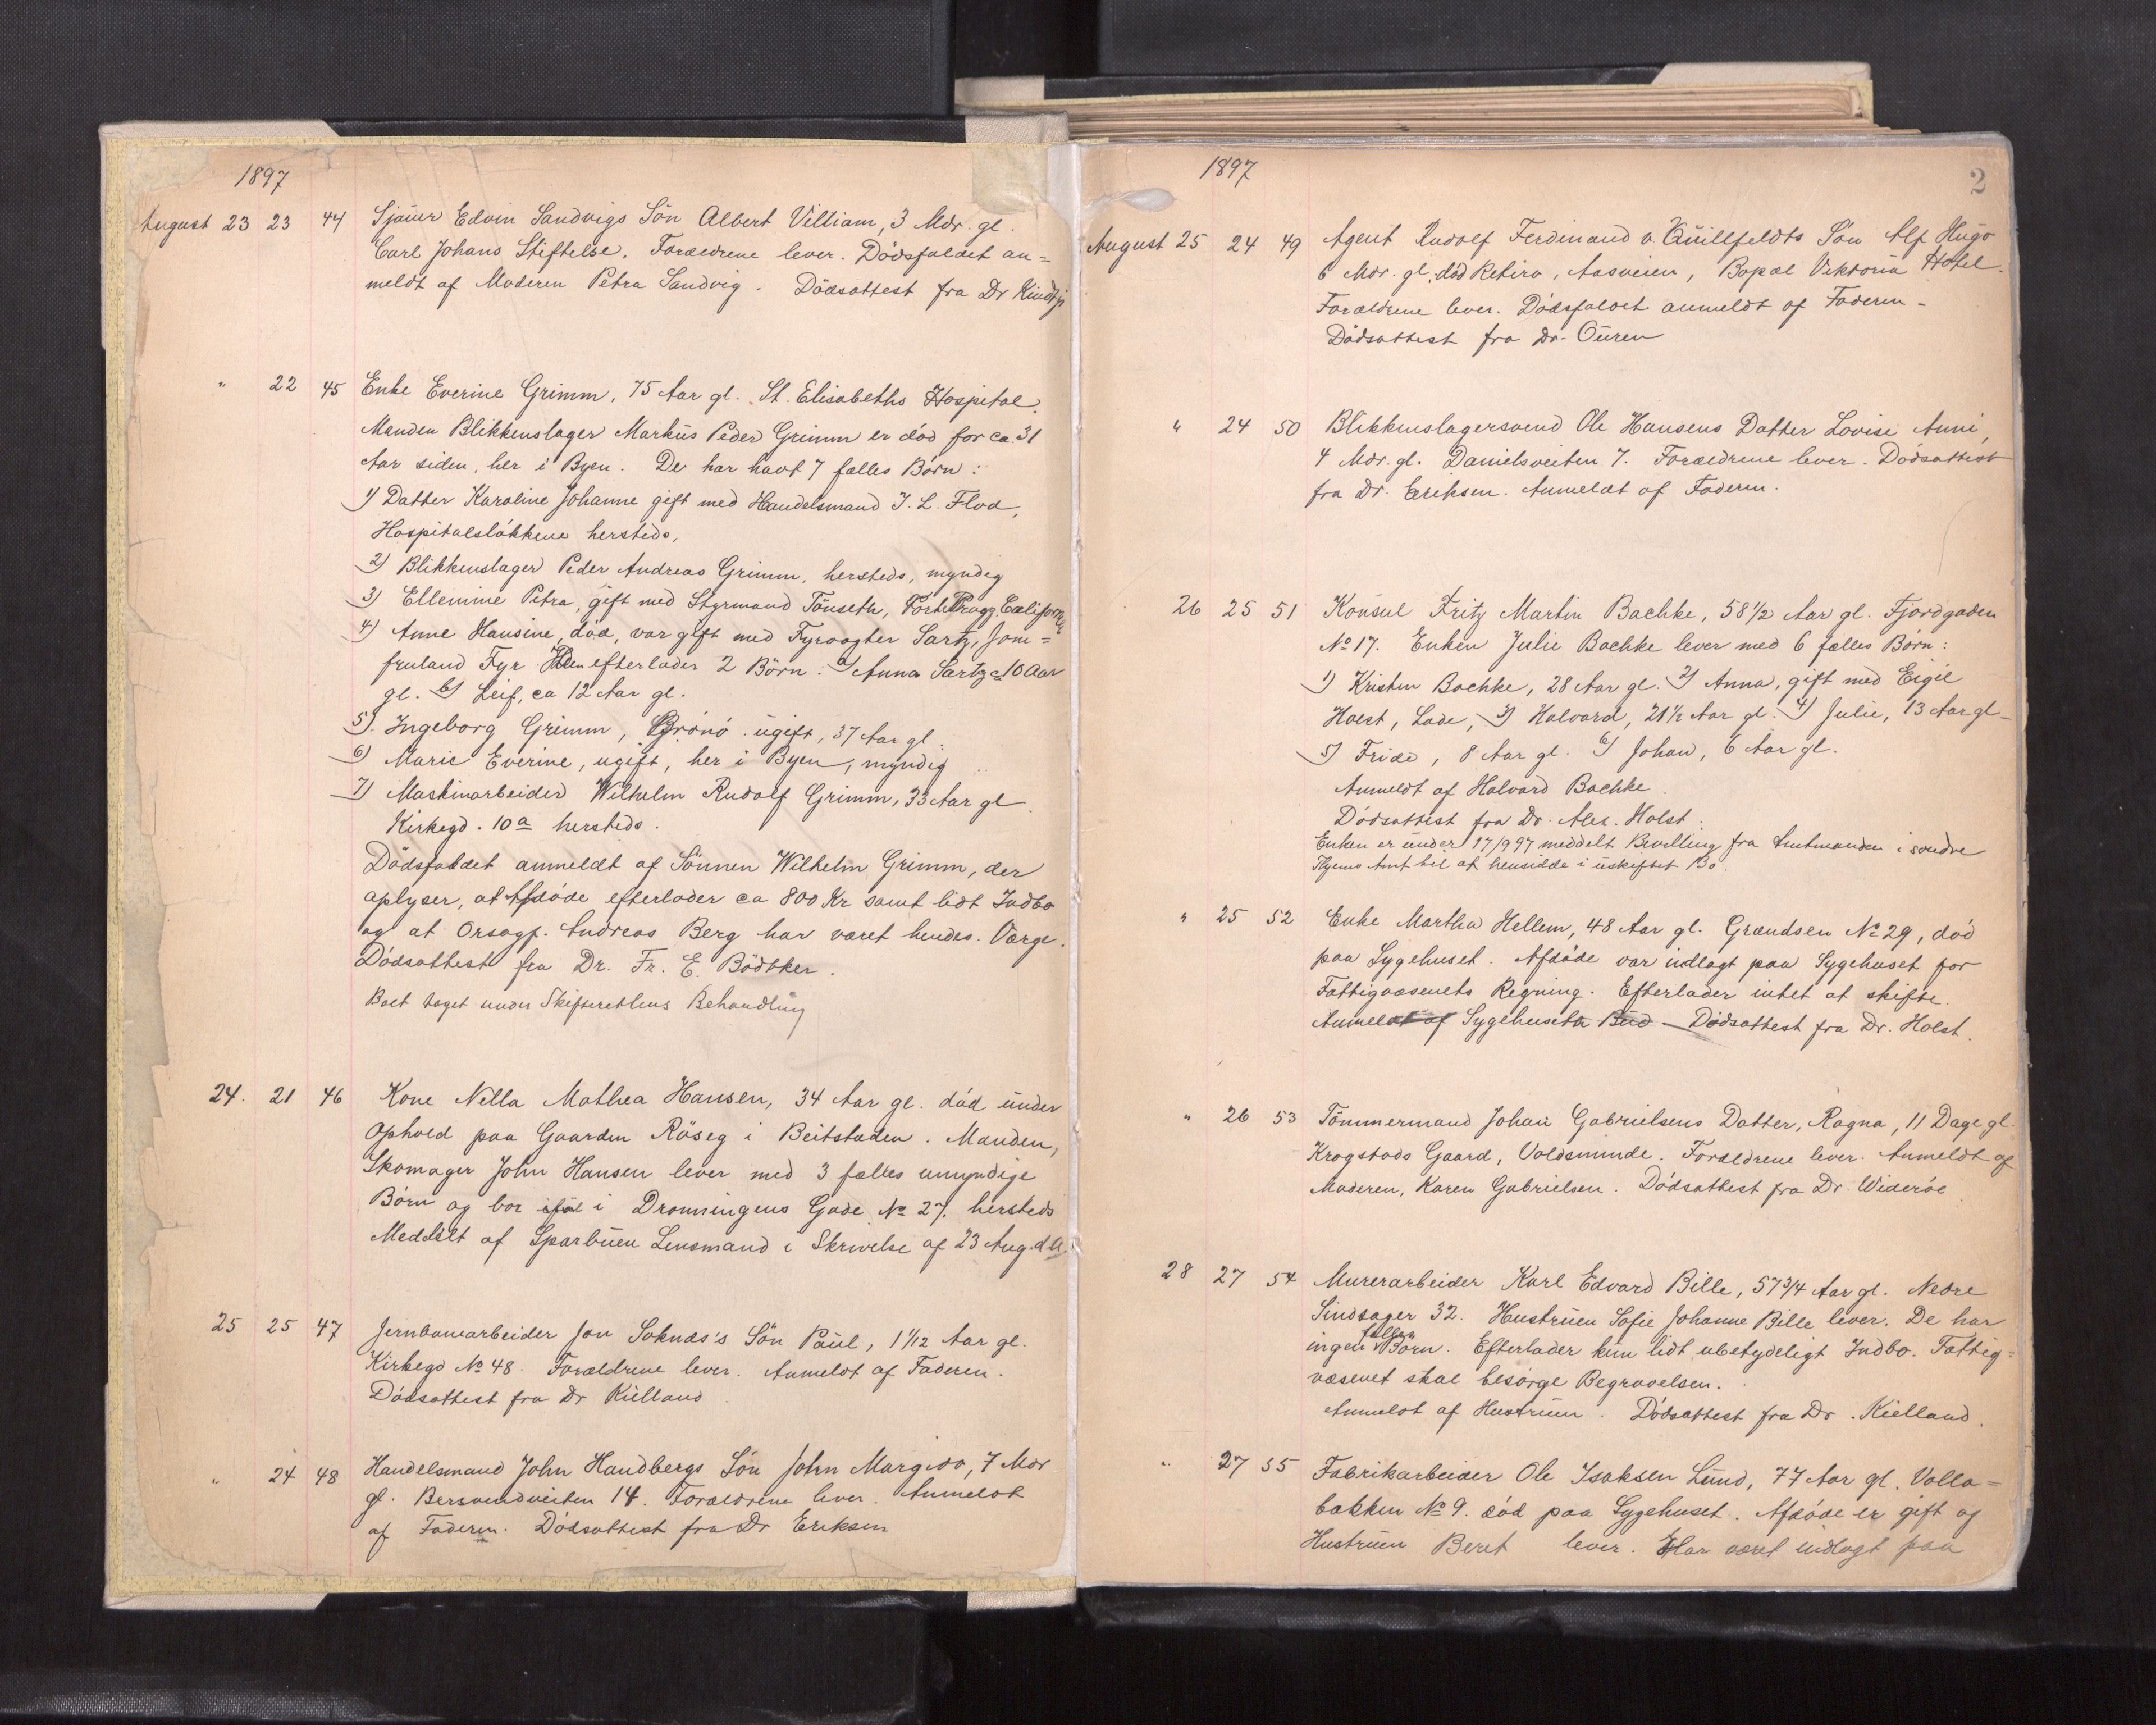 1897
August 23 23 44 Sjauer Edvin Sandvigs Sön Albert Villiam, 3 Mdr. gl.
Carl Johans Stiftelse. Forældrene lever. Dödsfaldet an=
meldt af Moderen Petra Sandvig. Dödsattest fra Dr
" 22 45 Enke Everine Grimm, 75 Aar gl. St. Elisabeths Hospital.
Manden Blikkenslager Markus Peder Grimm er död for ca. 31
Aar siden, her i Byen. De har havt 7 fælles Börn:
1) Datter Karoline Johanne gift med Handelsmand J. L. Flod,
Hospitalslökkene hersteds,
2) Blikkenslager Peder Andreas Grimm, hersteds, myndig
3) Ellemine Petra, gift med Styrmand Tönseth, Californien
4) Anne Hansine, död, var gift med Fyrvogter Sartz, Jom=
fruland Fyr efterlader 2 Börn: a) Anna Sartz ca 10 Aar
gl. b) Leif, ca 12 Aar gl.
5) Ingeborg Grimm, Brönö. ugift, 37 Aar gl.
6) Marie Everine, ugift, her i Byen, myndig
7) Maskinarbeider Wilhelm Rudolf Grimm, 33 Aar gl
Kirkegd. 10a hersteds.
Dödsfaldet anmeldt af Sönnen Wilhelm Grimm, der
oplyser, at Afdöde efterlader ca 800 Kr samt lidt Indbo
og at Orsagf. Andreas Berg har været hendes Værge.
Dödsattest fra Dr. Fr. E. Bödtker.
Boet taget under Skifterettens Behandling
24. 21 46 Kone Nella Mathea Hansen, 34 Aar gl. död under
Ophold paa Gaarden Röseg i Beitstaden. Manden,
Skomager John Hansen lever med 3 fælles umyndige
Börn og bor i Dronningens Gade No 27. hersteds
Meddelt af Sparbuen Lensmand i Skrivelse af 23 Aug. d.A.
25 25 47 Jernbanearbeider Jon Soknæs's Sön Paul, 1 1/12 Aar gl.
Kirkegd No 48. Forældrene lever. Anmeldt af Faderen.
Dödsattest fra Dr Kielland
" 24 48 Handelsmand John Handbergs Sön John Margido, 7 Mdr
gl. Bersvendveiten 14. Forældrene lever. Anmeldt
af Faderen. Dödsattest fra Dr Eriksen
1897
2
August 25 24 49 Agent Rudolf Ferdinand v. Quillfeldts Sön Alf Hugo
6 Mdr. gl. död Retiro, Aasveien, Bopæl Viktoria Hotel.
Forældrene lever. Dödsfaldet anmeldt af Faderen -
Dödsattest fra Dr. Ouren
" 24 50 Blikkenslagersvend Ole Hansens Datter Lovise Anni,
4 Mdr. gl. Danielsveiten 7. Forældrene lever. Dödsattest
fra Dr. Eriksen. Anmeldt af Faderen.
26 25 51 Konsul Fritz Martin Bachke, 58 1/2 Aar gl. Fjordgaden
No 17. Enken Julie Bachke lever med 6 fælles Börn:
1) Kristen Bachke, 28 Aar gl. 2) Anna, gift med Eigil
Holst, Lade, 3) Halvard, 21 1/2 Aar gl. 4) Julie, 13 Aar gl -
5) Fride, 8 Aar gl. 6) Johan, 6 Aar gl.
Anmeldt af Halvard Bachke.
Dödsattest fra Dr. Alex. Holst.
Enken er under 17/9 97 meddelt Bevilling fra Amtmanden i söndre
Thjems Amt til at hensidde i uskiftet Bo.
" 25 52 Enke Martha Hellem, 48 Aar gl. Grændsen No 29, död
paa Sygehuset. Afdöde var indlagt paa Sygehuset for
Fattigvæsenets Regning. Efterlader intet at skifte.
Anmeldt af Sygehusets Bud - Dödsattest fra Dr. Holst.
" 26 53 Tömmermand Johan Gabrielsens Datter, Ragna, 11 Dage gl.
Krogstads Gaard, Voldsminde. Forældrene lever. Anmeldt af
Moderen, Karen Gabrielsen. Dödsattest fra Dr. Wideröe
28 27 54 Murerarbeider Karl Edvard Bille, 57 3/4 Aar gl. Nedre
Sindsager 32. Hustruen Sofie Johanne Bille lever. De har
ingen fælles Börn. Efterlader kun lidt ubetydeligt Indbo. Fattig=
væsenet skal besörge Begravelsen.
Anmeldt af Hustruen. Dödsattest fra Dr. Kielland.
" 27 55 Fabrikarbeider Ole Isaksen Lund, 77 Aar gl. Volla=
bakken No 9. död paa Sygehuset. Afdöde er gift og
Hustruen Beret lever. Har været indlagt paa